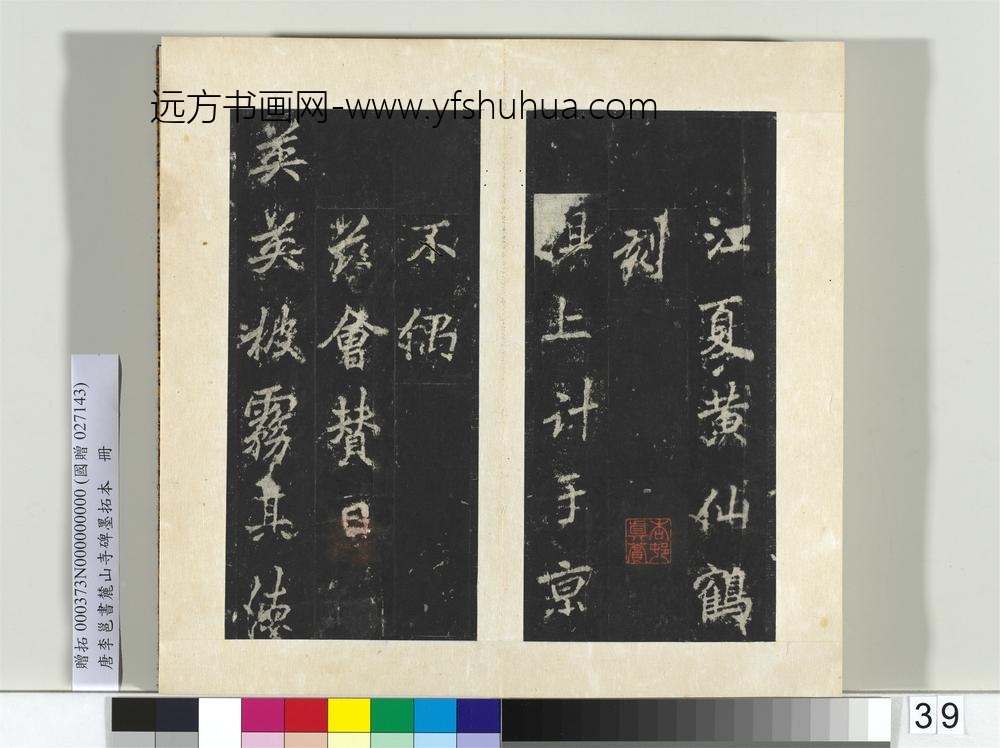 远方书画网-www.yfshuhua.com
江夏黄仙鶴
刻
俱上计于京
不偶
兹會賛曰
英英披霧其德
杏邨真賞
贈拓 000373N000000000 (國贈 027143)
唐李邕書麓山寺碑墨拓本 冊
39